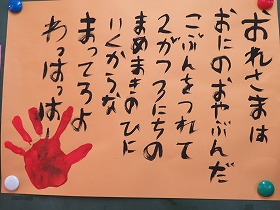 おれさまは
おにのおやぶんだ
こぶんをつれて
2がつ3にちの
まめまきのひに
いくからな
まってろよ
わっはっはー